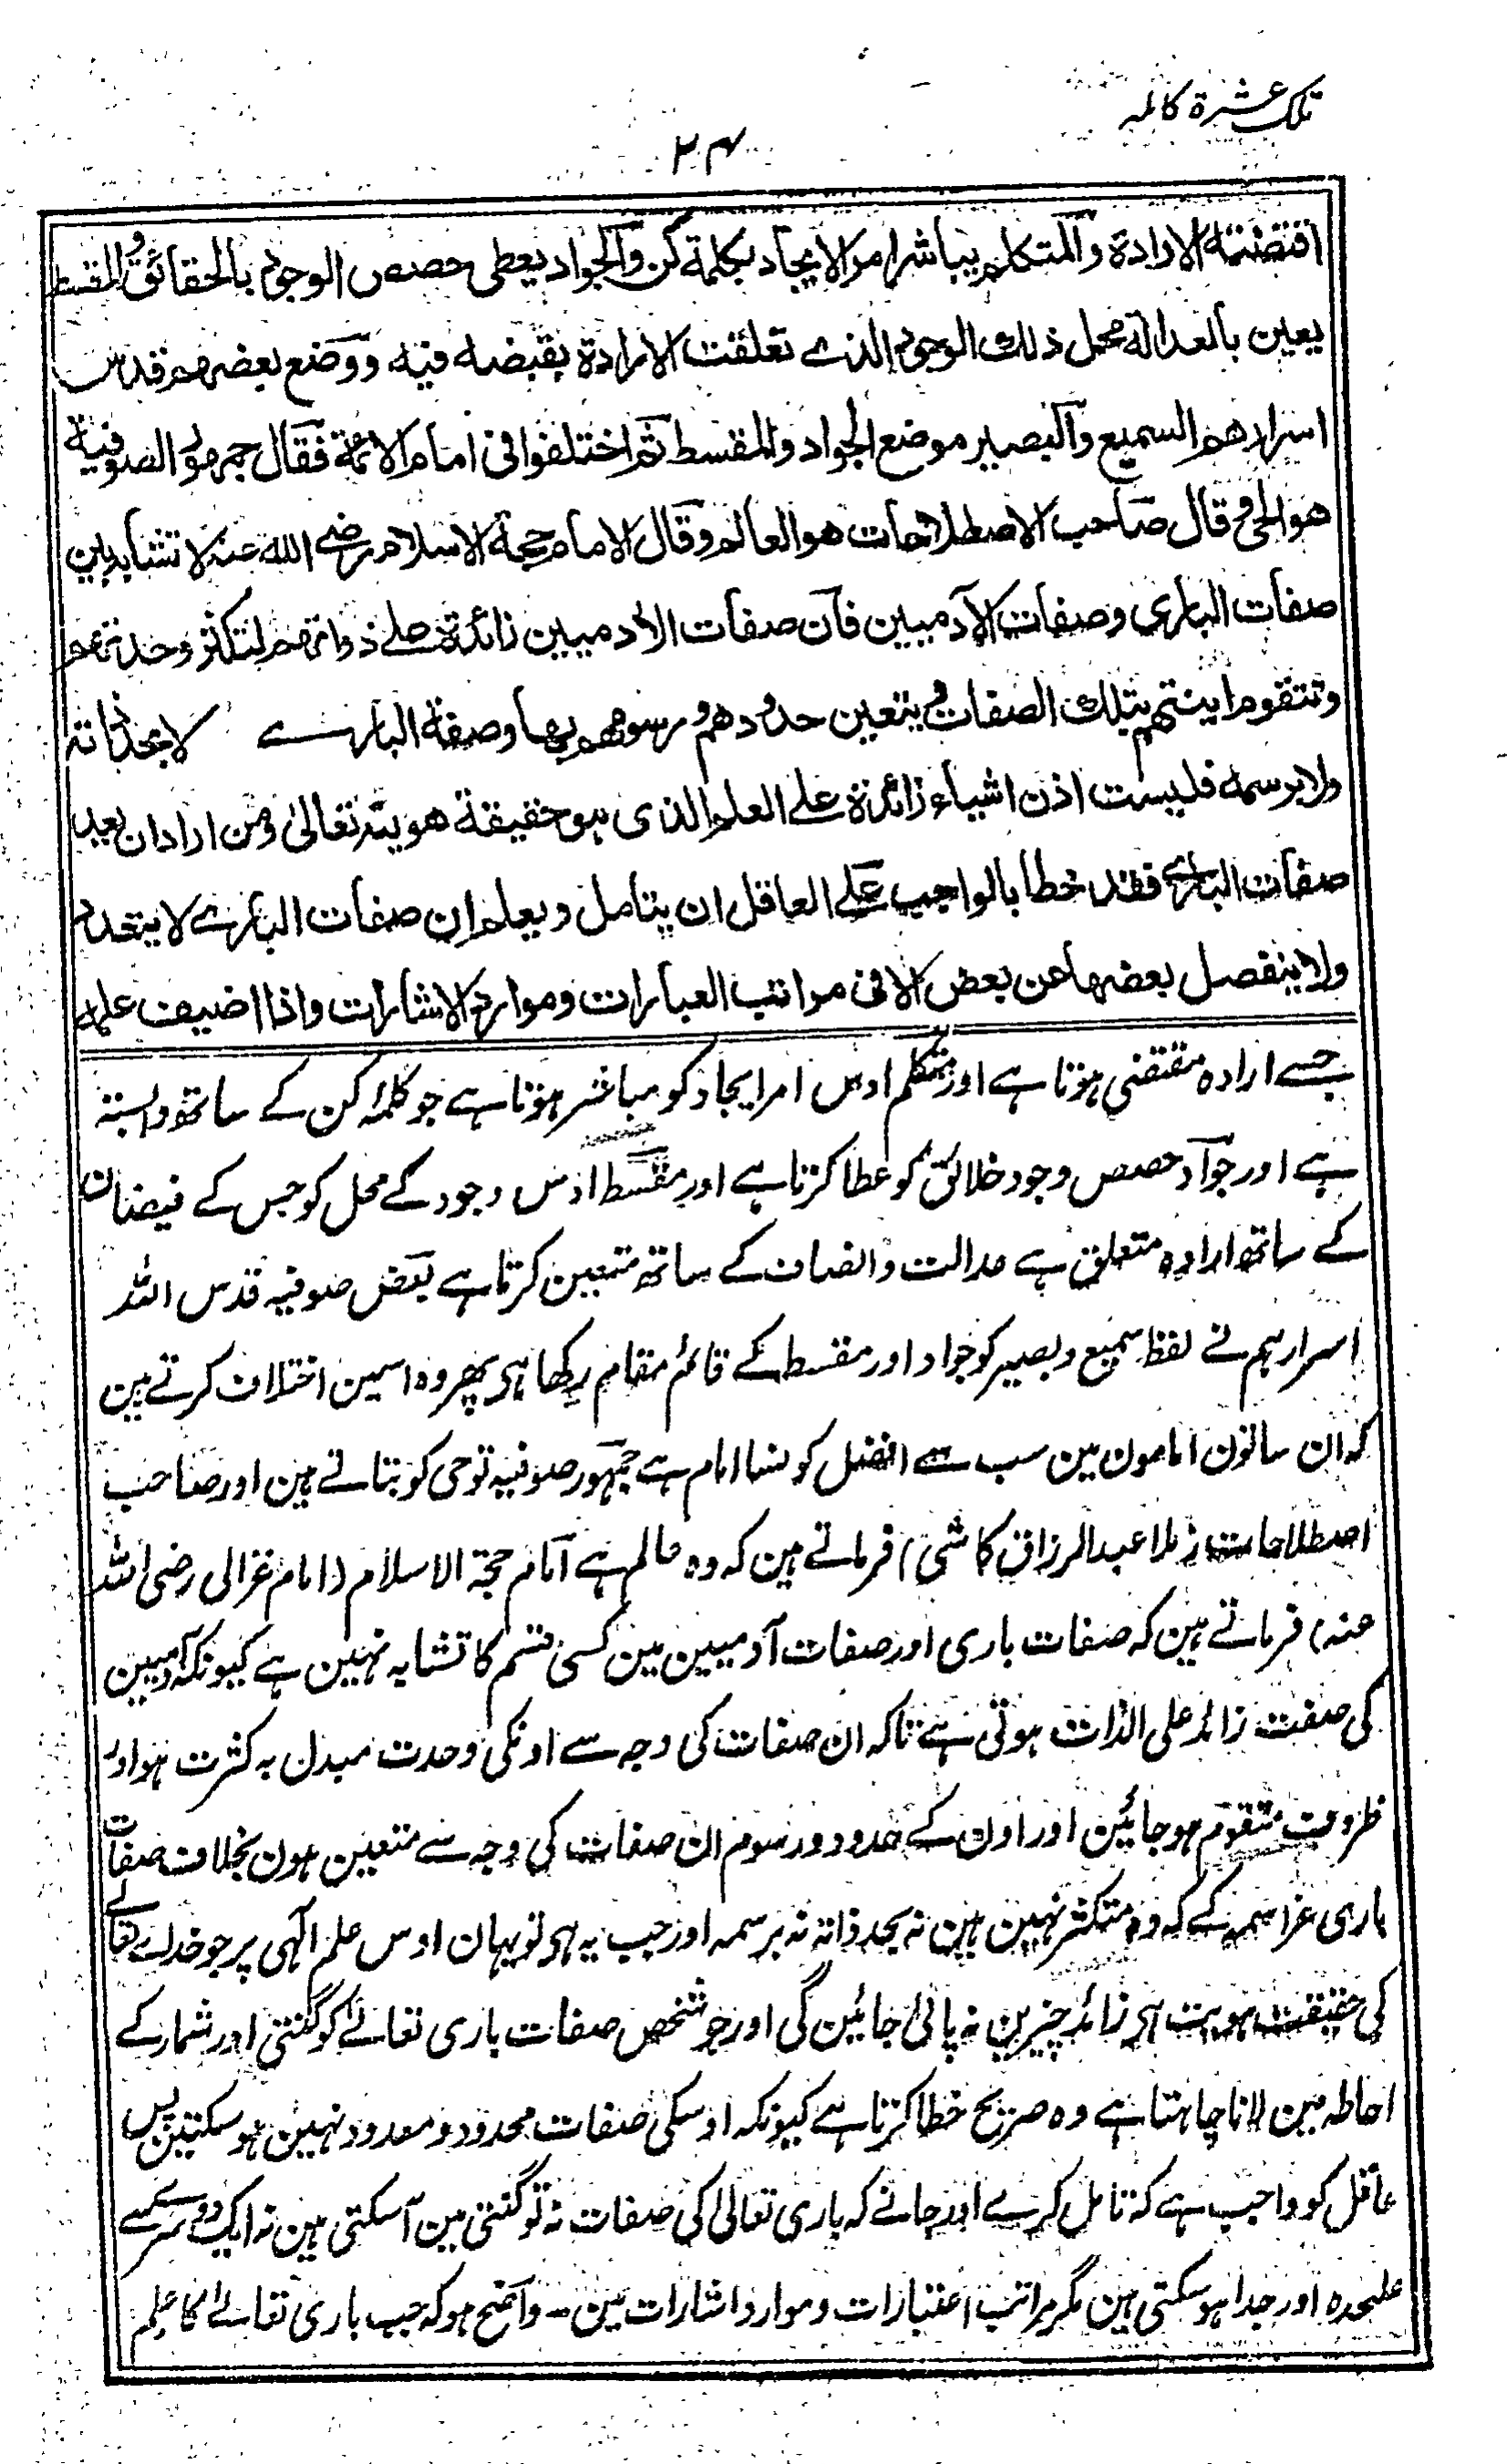 تلک عشرة کاملہ
۲۴
اقتضته الارادة والمتکلم یباشر امر الایجاد بکلمة کن والجواد یعطی حصص الوجود بالحقائق والمقسط
یعین بالعدالة محل ذلك الوجود الذے تعلقت الارادة بقبضه فیه ووضع بعضهم قدس
اسرارهم السمیع والبصیر موضع الجواد والمقسط ثم اختلفوا فی امام الائمة فقال جمهور الصوفیة
هو الحی وقال صاحب الاصطلاحات هو العالم وقال الامام حجة الاسلام رضے الله عنه لا تشابه بین
صفات الباری وصفات الآدمیین فان صفات الادمیین زائدة علے ذواتهم لتتکثر وحدتهم
وتتقوم اینتهم بتلك الصفات ویتعین حدودهم ورسومهم بها وصفة البارے لا بحد ذاته
ولا برسمه فلیست اذن اشیاء زائدة علے العلم الذی هو حقیقة هویته تعالیٰ ومن اراد ان یعد
صفات البارے فقد خطا بالواجب علے العاقل ان یتامل ویعلم ان صفات البارے لا یتعدد
ولا ینفصل بعضها عن بعض الا فی مراتب العبارات وموارد الاشارات واذا اضیف علمه
جسے ارادہ مقتضی ہوتا ہے اور متکلم اوس امر ایجاد کو مباشر ہوتا ہے جو کلمۂ کن کے ساتھ وابستہ
ہے اور جواد حصص وجود خلائق کو عطا کرتا ہے اور مقسط اوس وجود کے محل کو جس کے فیضان
کے ساتھ ارادہ متعلق ہے عدالت وانصاف کے ساتھ متعین کرتا ہے بعض صوفیہ قدس اللہ
اسرارہم نے لفظ سمیع وبصیر کو جواد اور مقسط کے قائم مقام رکھا ہی پھر وہ اسمین اختلاف کرتے ہین
کہ ان ساتون امامون مین سب سے افضل کونسا امام ہے جمہور صوفیہ تو حی کو بتاتے ہین اور صاحب
اصطلاحات (ملا عبدالرزاق کاشی) فرماتے ہین کہ وہ عالم ہے امام حجۃ الاسلام (امام غزالی رضی اللہ
عنہ) فرماتے ہین کہ صفات باری اور صفات آدمیین مین کسی قسم کا تشابہ نہین ہے کیونکہ آدمیین
کی صفت زائد علی الذات ہوتی ہے تاکہ ان صفات کی وجہ سے اونکی وحدت مبدل بہ کثرت ہو اور
ظروف متقوم ہو جائین اور اون کے حدود ورسوم ان صفات کی وجہ سے متعین ہون بخلاف صفات
باری عز اسمہ کے کہ وہ متکثر نہین ہین نہ بحد ذاتہ نہ برسمہ اور جب یہ ہی تو یہان اوس علم الٰہی پر جو خدا تعالے
کی حقیقت ہویت ہی زائد چیزین نہ پائی جائین گی اور جو شخص صفات باری تعالے کو گنتی اور شمار کے
احاطہ مین لانا چاہتا ہے وہ صریح خطا کرتا ہے کیونکہ اوسکی صفات محدود و معدود نہین ہو سکتین پس
عاقل کو واجب ہے کہ تامل کرے اور جانے کہ باری تعالیٰ کی صفات نہ تو گنتی مین آ سکتی ہین نہ ایک دوسرے سے
علیحدہ اور جدا ہو سکتی ہین مگر مراتب اعتبارات و موارد اشارات مین۔ واضح ہو کہ جب باری تعالے کا علم